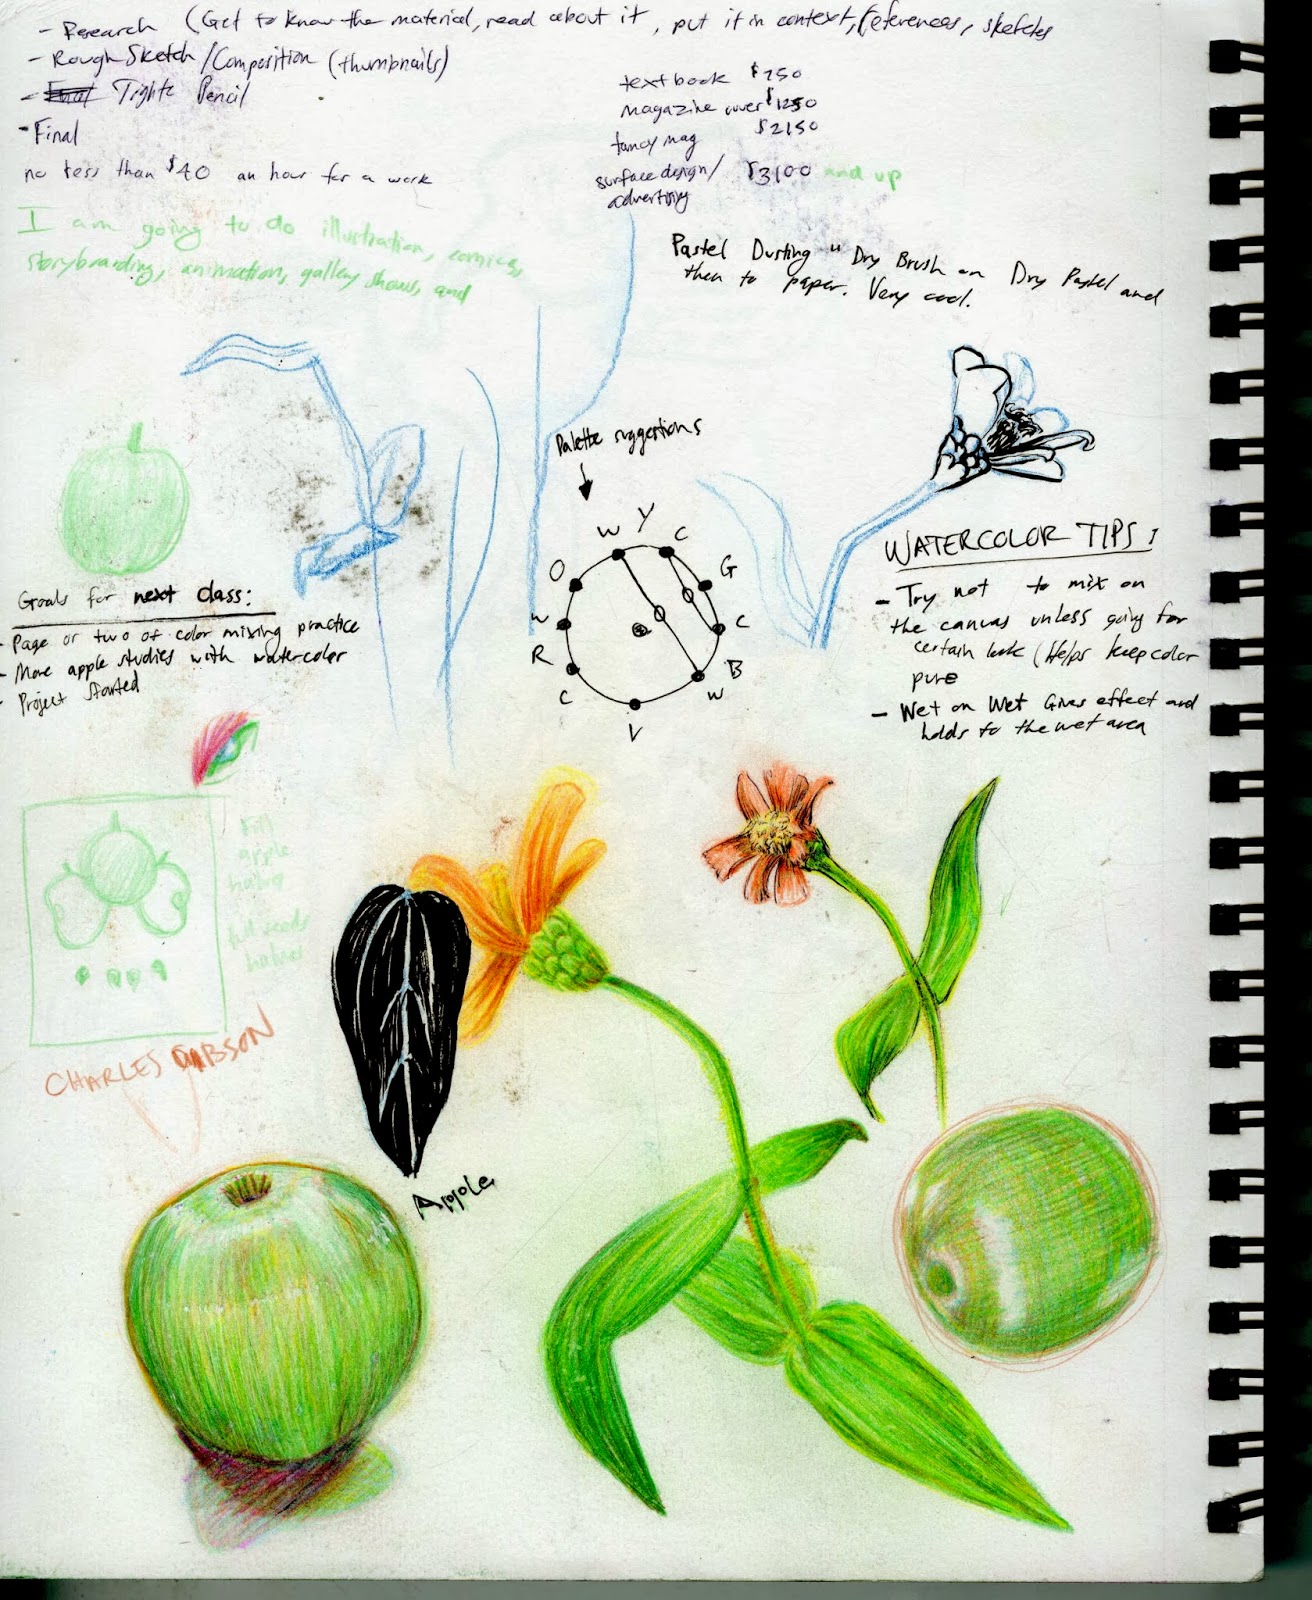 - Research (Get to know the material, read about it, put it in context, references, sketches
- Rough Sketch/Composition (thumbnails)
- Final Tight Pencil
- Final
no less than $40 an hour for a work
textbook $250
magazine cover $1250
fancy mag $2150
surface design/ $3100 and up
advertising
I am going to do illustration, comics,
storyboarding, animation, gallery shows, and
Pastel Dusting " Dry Brush on Dry Pastel and
then to paper. Very cool.
Palette suggestions
W Y C
O G
W C
R B
C W
V
WATERCOLOR TIPS:
- Try not to mix on
the canvas unless going for
certain look (Helps keep color
pure
- Wet on Wet Gives effect and
holds to the wet area
Goals for next class:
- Page or two of color mixing practice
- More apple studies with watercolor
- Project Started
full
apple
full seeds
CHARLES GIBSON
Apple